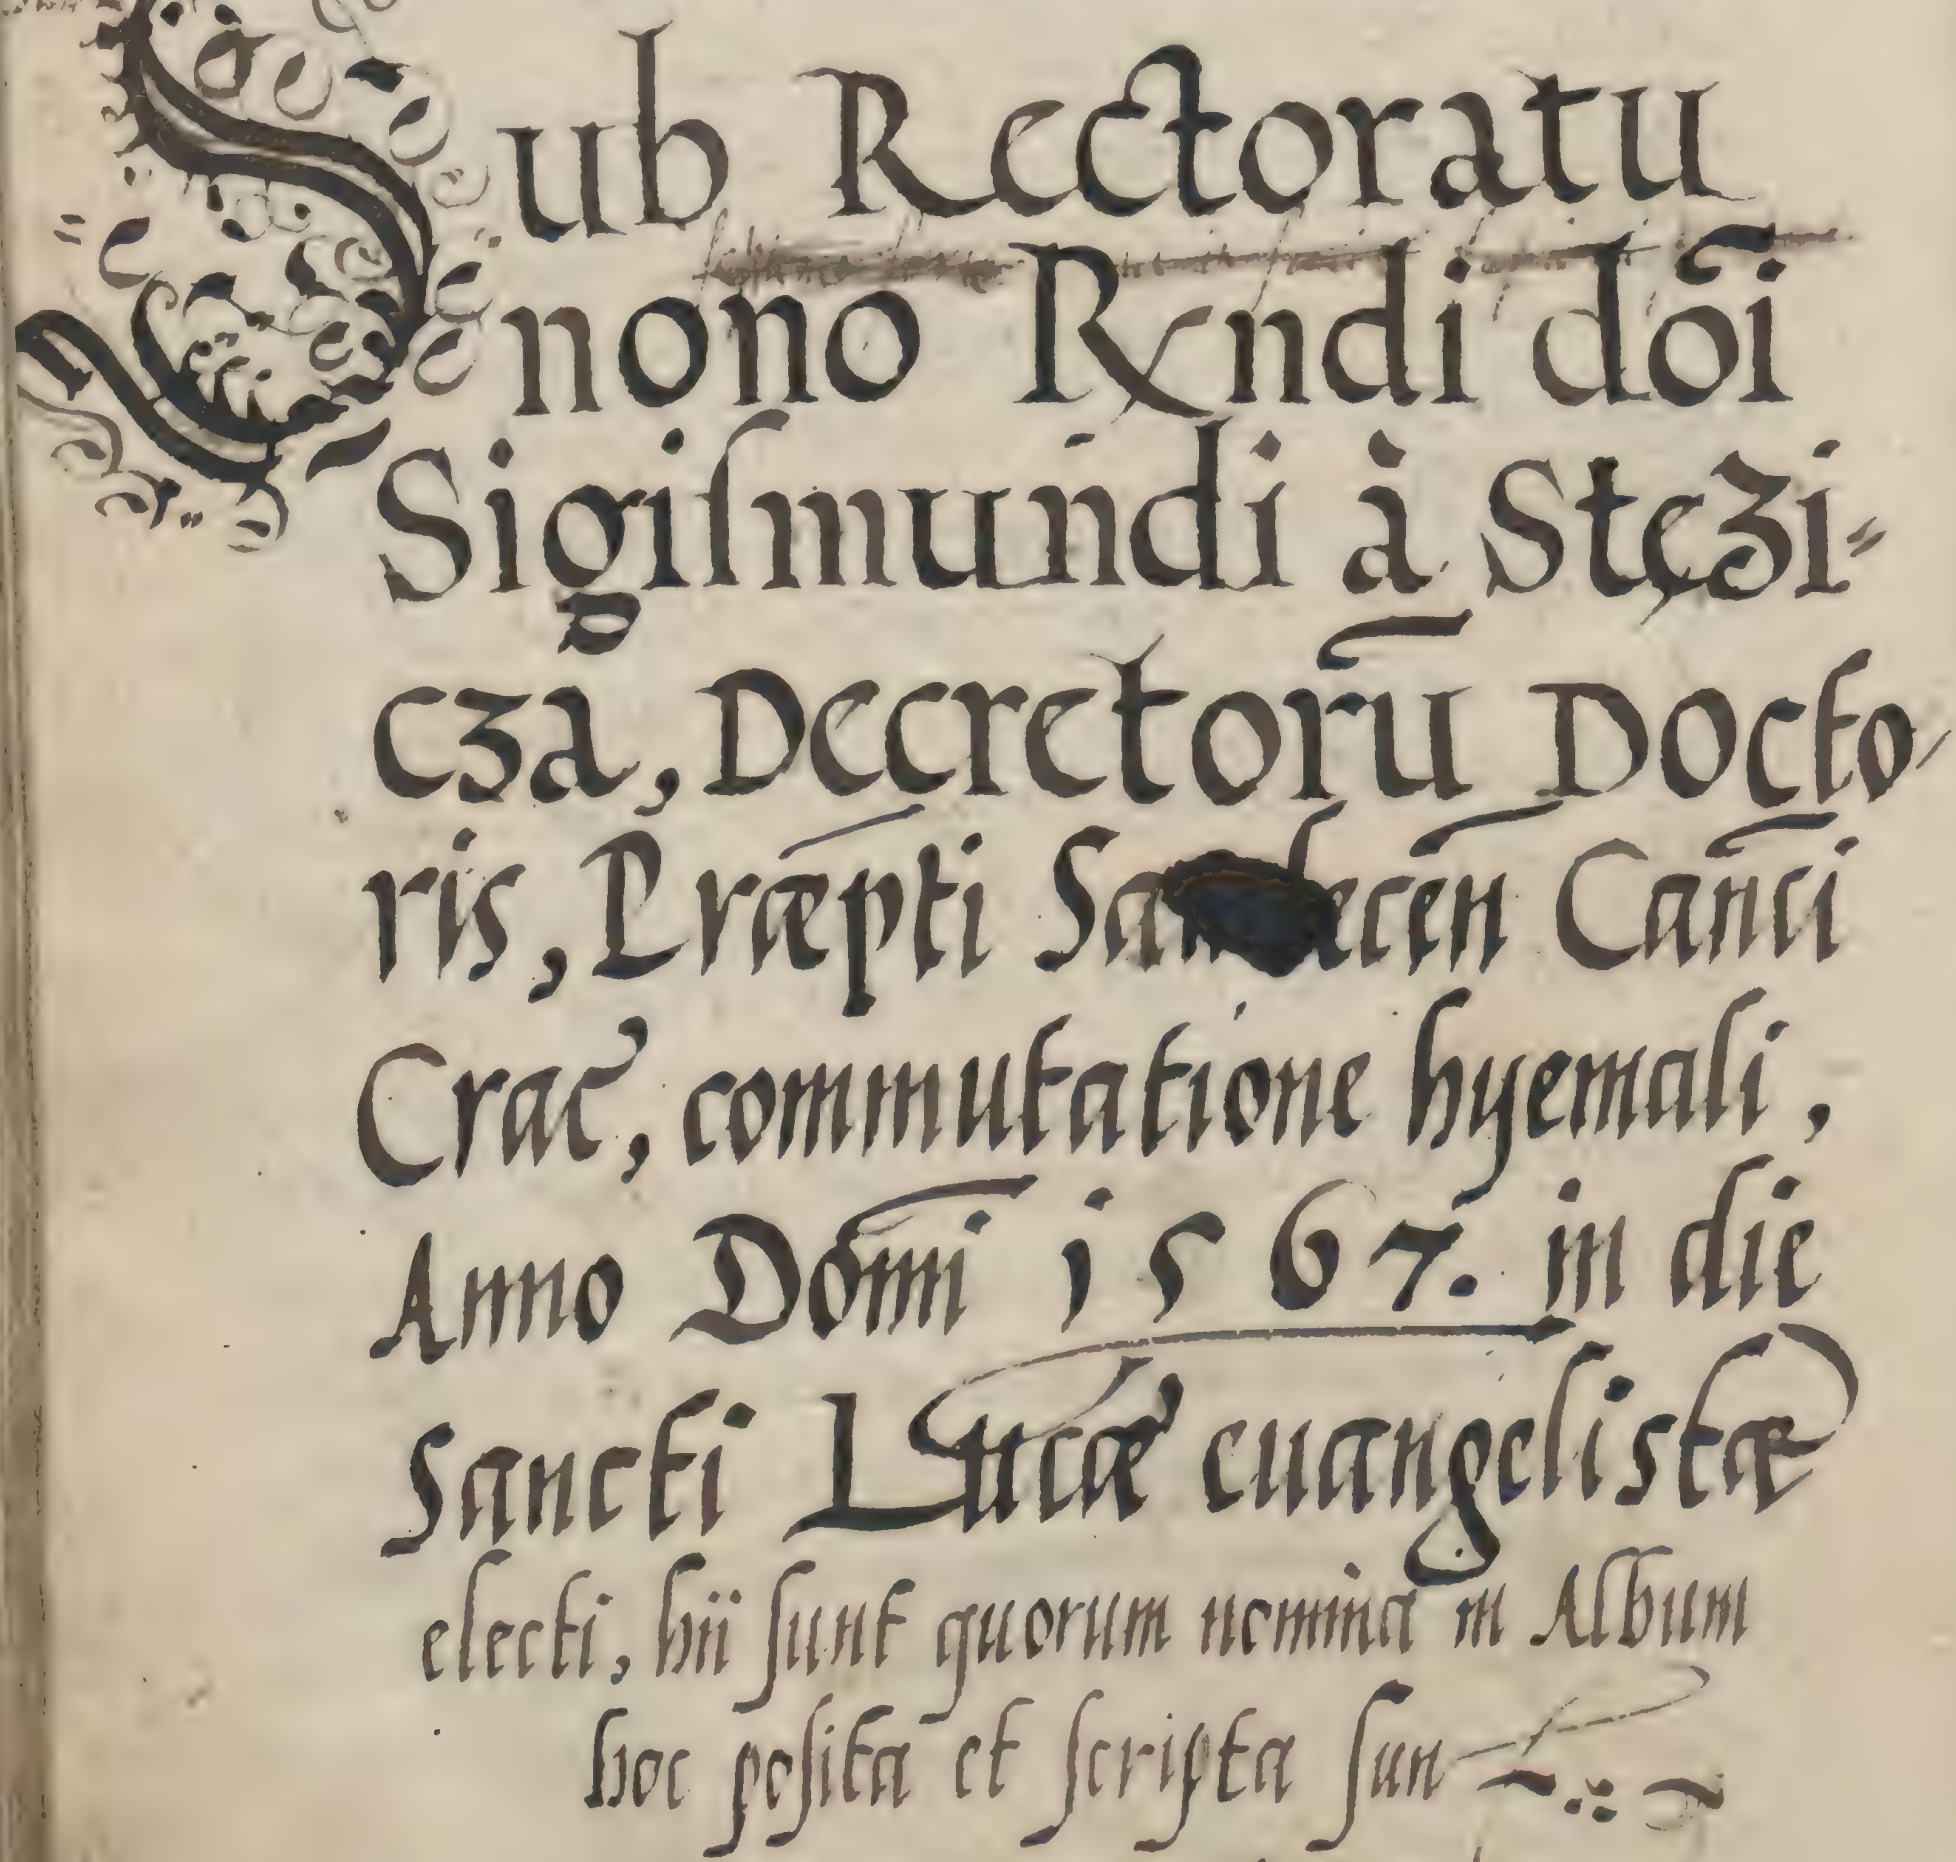 Sub Rectoratu
nono Rndi dōi
Sigiſmundi à Stęzi-
cza, Decretorū Docto-
ris, Præpti Sandecen̄ Cānci
Crac̄, commutatione hyemali,
Anno Domi 1567. in die
Sancti Lucæ euangelistæ
electi, hii ſunt quorum nomina in Album
hoc poſita et ſcripta ſunt